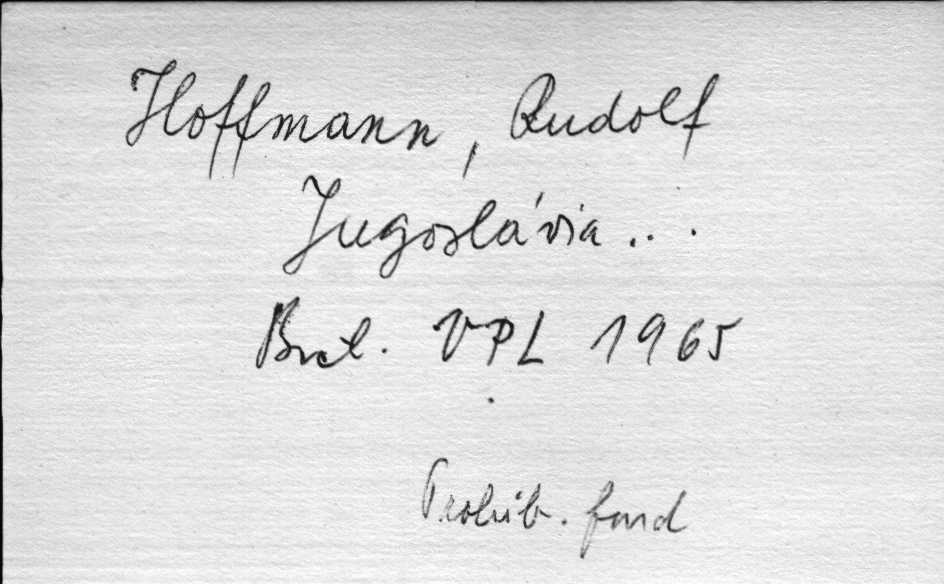 Hoffmann, Rudolf
Jugoslávia...
Brat. VPL 1965
Prohib. fond